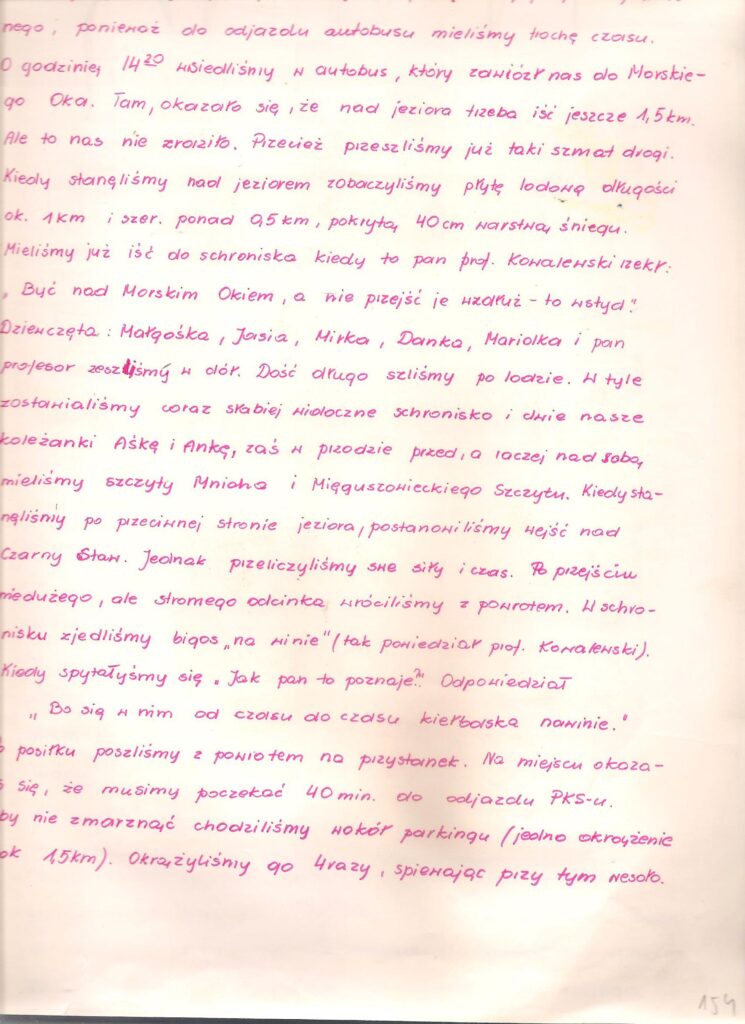 nego, ponieważ do odjazdu autobusu mieliśmy trochę czasu.
O godzinie, 14²⁰ wsiedliśmy w autobus, który zawiózł nas do Morskie-
go Oka. Tam, okazało się, że nad jeziora trzeba iść jeszcze 1,5 km.
Ale to nas nie zraziło. Przecież przeszliśmy już taki szmat drogi.
Kiedy stanęliśmy nad jeziorem zobaczyliśmy płytę lodową długości
ok. 1 km i szer. ponad 0,5 km, pokrytą 40 cm warstwą śniegu.
Mieliśmy już iść do schroniska kiedy to pan prof. Kowalewski rzekł:
„Być nad Morskim Okiem, a nie przejść je wzdłuż - to wstyd".
Dziewczęta: Małgośka, Jasia, Mirka, Danka, Mariolka i pan
profesor zeszliśmy w dół. Dość długo szliśmy po lodzie. W tyle
zostawialiśmy coraz słabiej widoczne schronisko i dwie nasze
koleżanki Aśkę i Ankę, zaś w przodzie przed, a raczej nad sobą,
mieliśmy szczyty Mnicha i Mięguszowieckiego Szczytu. Kiedy sta-
nęliśmy po przeciwnej stronie jeziora, postanowiliśmy wejść nad
Czarny Staw. Jednak przeliczyliśmy swe siły i czas. Po przejściu
niedużego, ale stromego odcinka wróciliśmy z powrotem. W schro-
nisku zjedliśmy bigos „na winie" (tak powiedział prof. Kowalewski).
Kiedy spytałyśmy się „Jak pan to poznaje?" Odpowiedział
„Bo się w nim od czasu do czasu kiełbaska nawinie."
posiłku poszliśmy z powrotem na przystanek. Na miejscu okaza-
się, że musimy poczekać 40 min. do odjazdu PKS-u.
by nie zmarznąć chodziliśmy wokół parkingu (jedno okrążenie
ok 1,5 km). Okrążyliśmy go 4 razy, śpiewając przy tym wesoło.
154